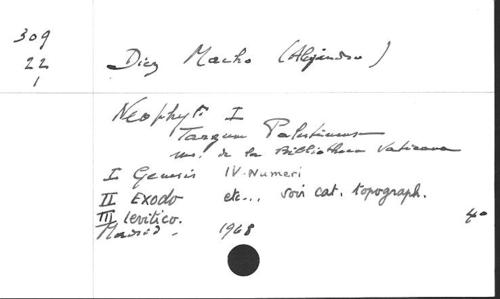 309
22
1
Diez Macho (Alejandro)
Neophyti I
Targum Palestinense
ms. de la Biblioteca Vaticana
I Genesis IV-Numeri
II Exodo etc... voir cat. topograph.
III levitico.
Madrid. 1968
4°